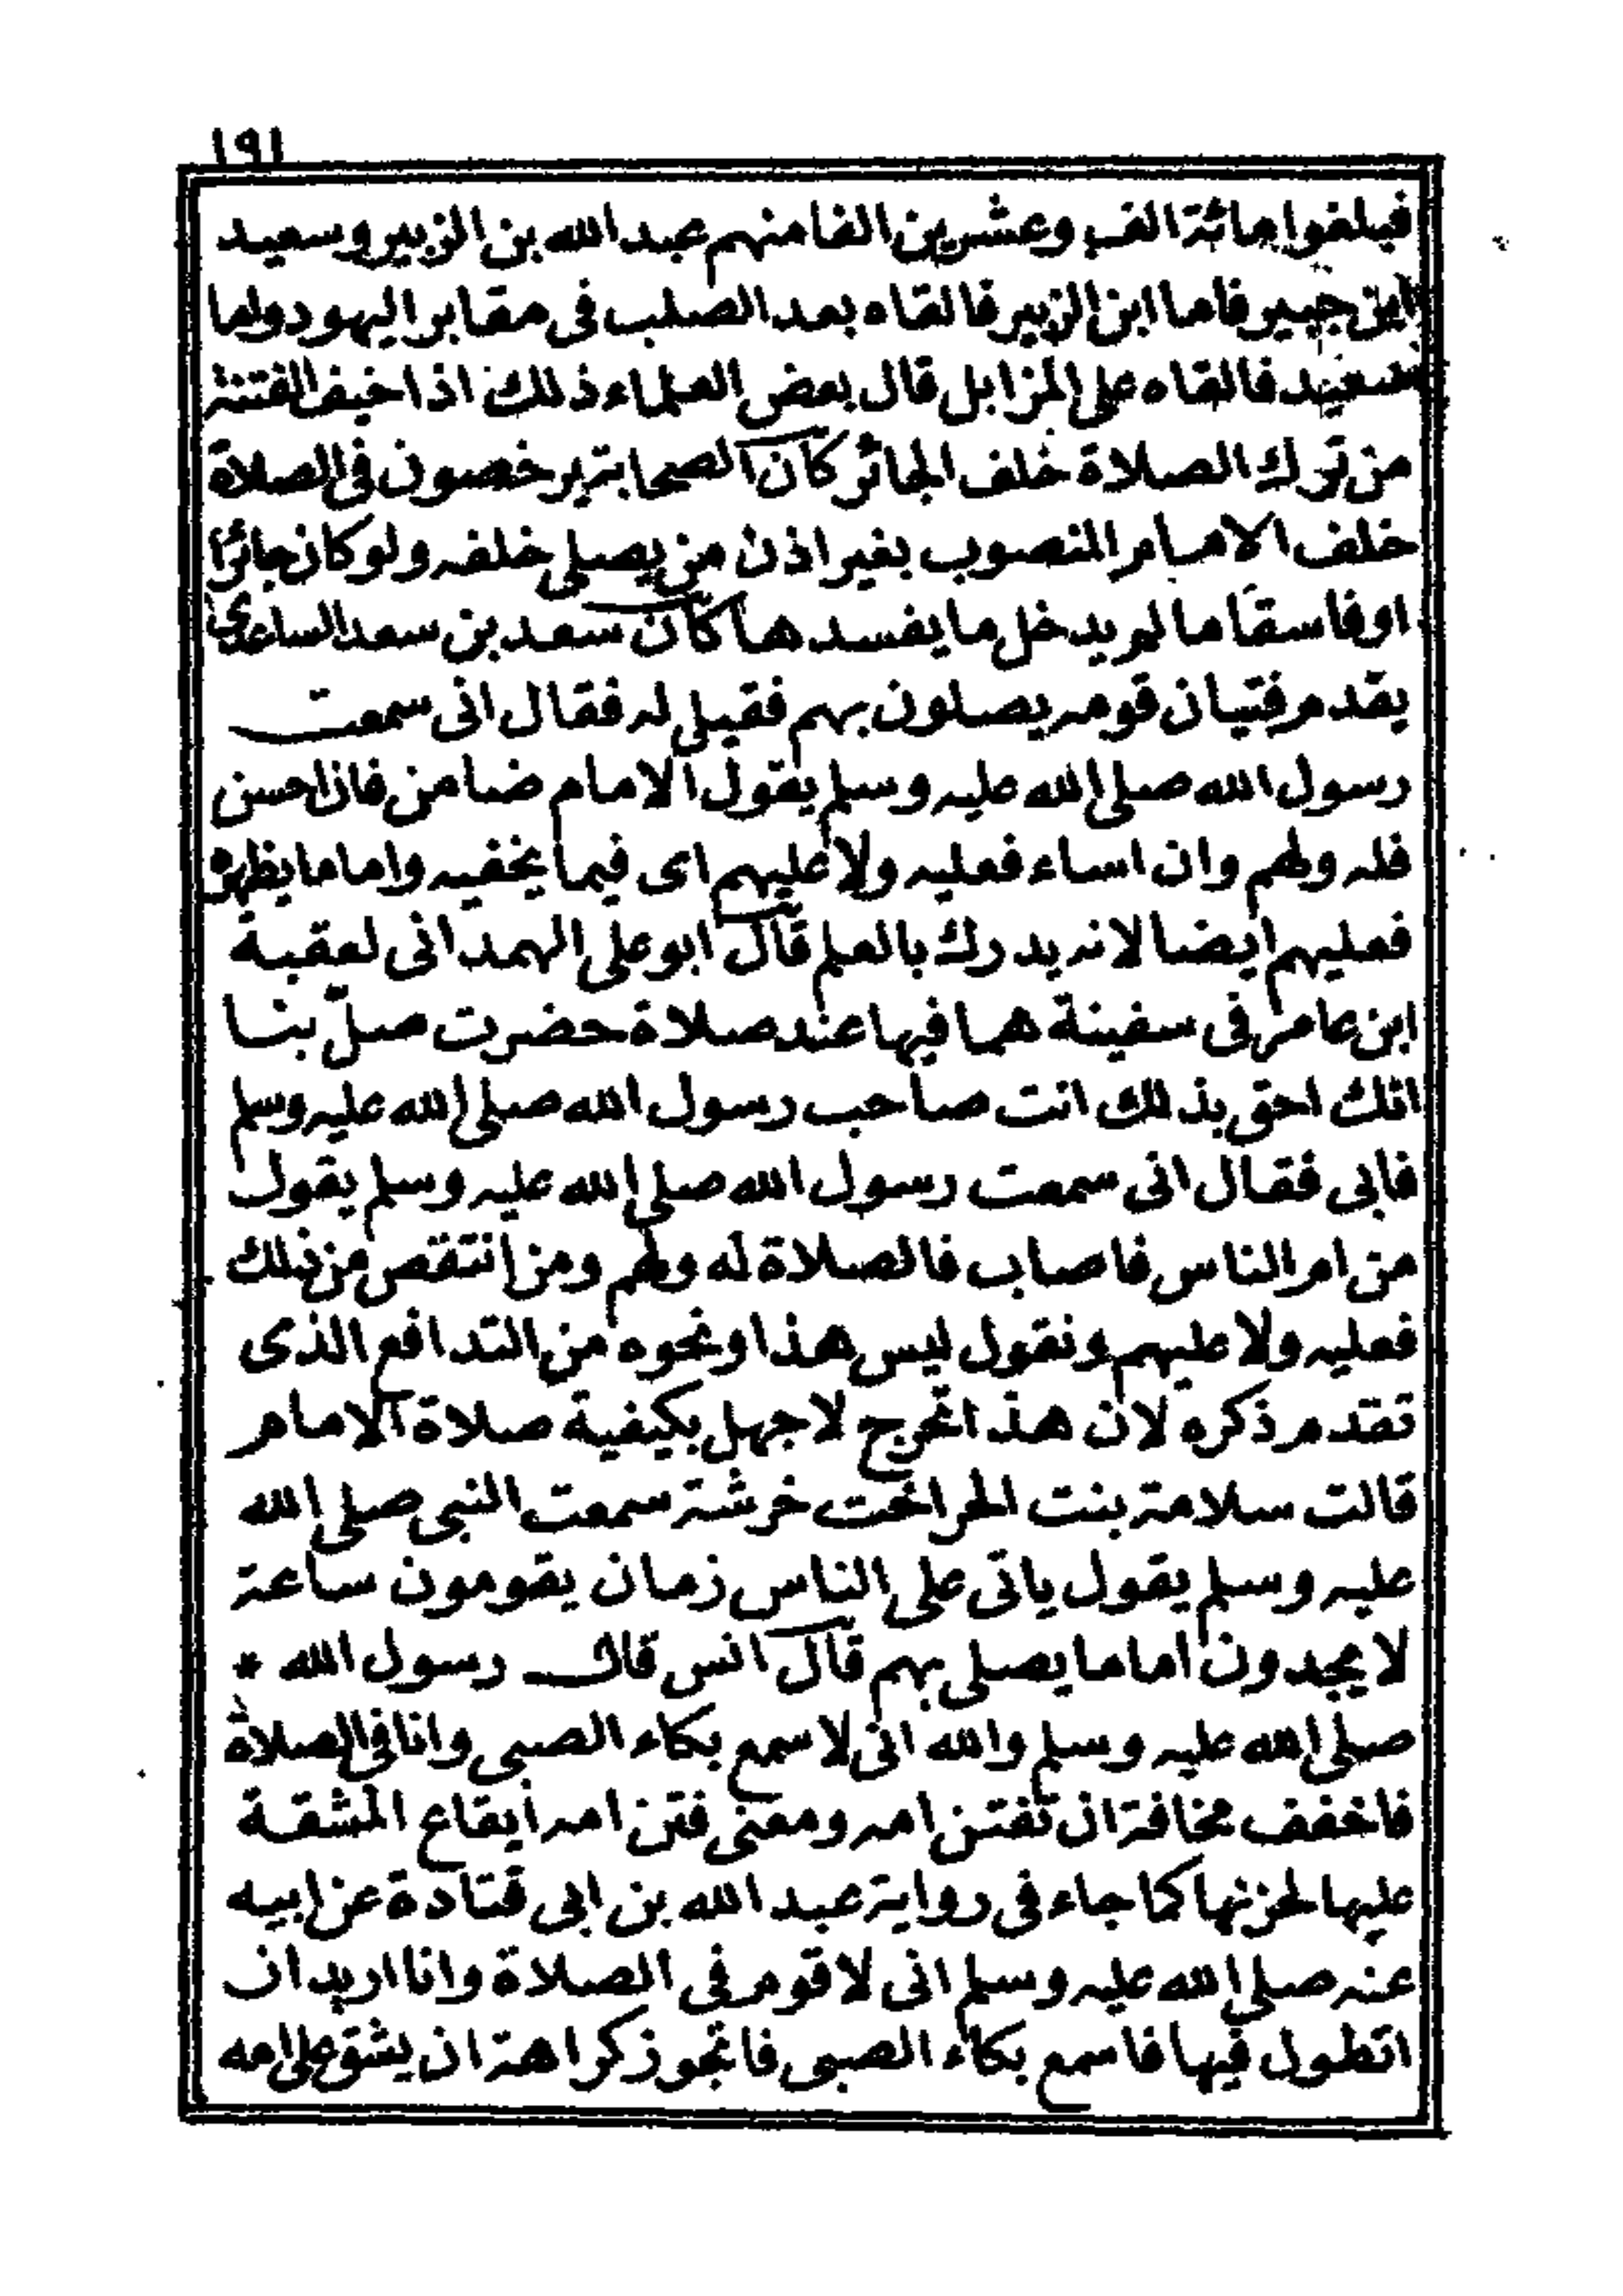 ١٩١
فبلغوا مائة الف وعشرين الفا منهم عبد الله بن الزبير وسعيد
ابن جبير فاما ابن الزبير فالقاه بعد الصلب فى مقابر اليهود واما
سعيد فالقاه على المزابل قال بعض العلماء ذلك اذا خيف الفتنة
من ترك الصلاة خلف الجائر كان الصحابة يرخصون فى الصلاة
خلف الامام المنصوب بغير اذن من يصلى خلفه ولو كان جائرا
او فاسقا ما لم يدخل ما يفسدها كان سعد بن سعد الساعدى
يقدم فتيان قومه يصلون بهم فقيل له فقال انى سمعت
رسول الله صلى الله عليه وسلم يقول الامام ضامن فاذا احسن
فله ولهم وان اساء فعليه ولا عليهم اى فيما يخفيه واما ما يظهره
فعليهم ايضا لانه يدرك بالعلم قال ابو على الهمدانى لعقبة
ابن عامر فى سفينة هما فيها عند صلاة حضرت صلّ بنا
انك احق بذلك انت صاحب رسول الله صلى الله عليه وسلم
فابى فقال انى سمعت رسول الله صلى الله عليه وسلم يقول
من ام الناس فاصاب فالصلاة له ولهم ومن انتقص من ذلك
فعليه ولا عليهم ونقول ليس هذا ونحوه من التدافع الذى
تقدم ذكره لان هذا تحرج لا جهل بكيفية صلاة الامام
قالت سلامة بنت الحر اخت خرشة سمعت النبى صلى الله
عليه وسلم يقول ياتى على الناس زمان يقومون ساعة
لا يجدون اماما يصلى بهم قال انس قال رسول الله *
صلى الله عليه وسلم والله انى لاسمع بكاء الصبى وانا فى الصلاة
فاخفف مخافة ان تفتن امه ومعنى فتن امه ايقاع المشقة
عليها لحزنها كما جاء فى رواية عبد الله بن ابى قتادة عن ابيه
عنه صلى الله عليه وسلم انى لاقوم فى الصلاة وانا اريد ان
اتطول فيها فاسمع بكاء الصبى فاتجوز كراهة ان يشق على امه